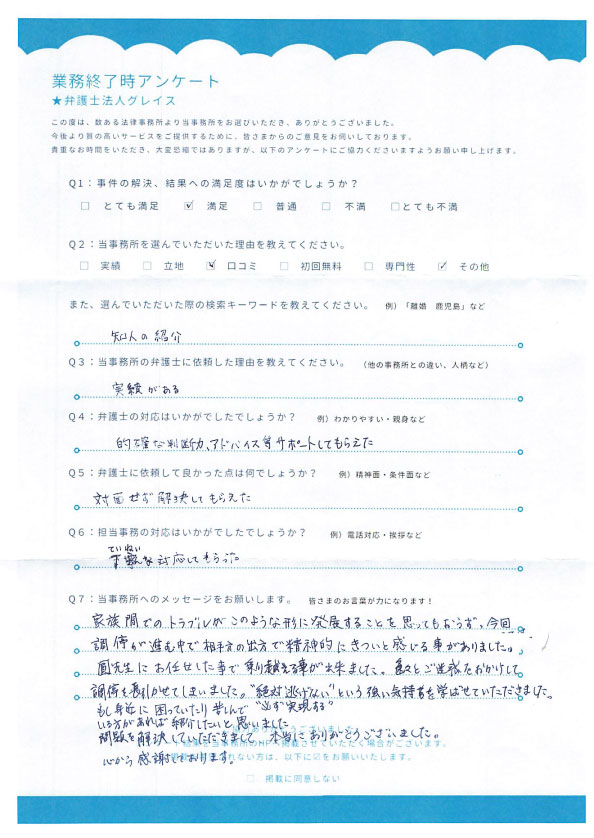 業務終了時アンケート
★弁護士法人グレイス
この度は、数ある法律事務所より当事務所をお選びいただき、ありがとうございました。
今後より質の高いサービスをご提供するために、皆さまからのご意見をお伺いしております。
貴重なお時間をいただき、大変恐縮ではありますが、以下のアンケートにご協力くださいますようお願い申し上げます。
Q1：事件の解決、結果への満足度はいかがでしょうか？
□ とても満足 ☑ 満足 □ 普通 □ 不満 □とても不満
Q2：当事務所を選んでいただいた理由を教えてください。
□ 実績 □ 立地 ☑ 口コミ □ 初回無料 □ 専門性 ☑ その他
また、選んでいただいた際の検索キーワードを教えてください。 例）「離婚 鹿児島」など
知人の紹介
Q3：当事務所の弁護士に依頼した理由を教えてください。 （他の事務所との違い、人柄など）
実績がある
Q4：弁護士の対応はいかがでしたでしょうか？ 例）わかりやすい・親身など
的確な判断力、アドバイス等サポートしてもらえた
Q5：弁護士に依頼して良かった点は何でしょうか？ 例）精神面・条件面など
対面せず解決してもらえた
Q6：担当事務の対応はいかがでしたでしょうか？ 例）電話対応・挨拶など
ていねい
な対応してもらった
Q7：当事務所へのメッセージをお願いします。 皆さまのお言葉が力になります！
家族間でのトラブルがこのような形に発展することを思ってもおらず、今回
調停が進む中で相手方の出方で精神的にきついと感じる事がありました。
先生にお任せした事で乗り越える事が出来ました。色々とご迷惑をおかけして
調停を長引かせてしまいました。“絶対逃げない”という強い気持ちを学ばせていただきました。
“必ず実現する”
もし身近に困っていたり悩んで
いる方があれば紹介したいと思いました
問題を解決していただきまして、本当にありがとうございました。
心から感謝しております。
ありがとうございました。
アンケート結果を当事務所のHPへ掲載させていただく場合がございます。
されない方は、以下に☑をお願いいたします。
□ 掲載に同意しない